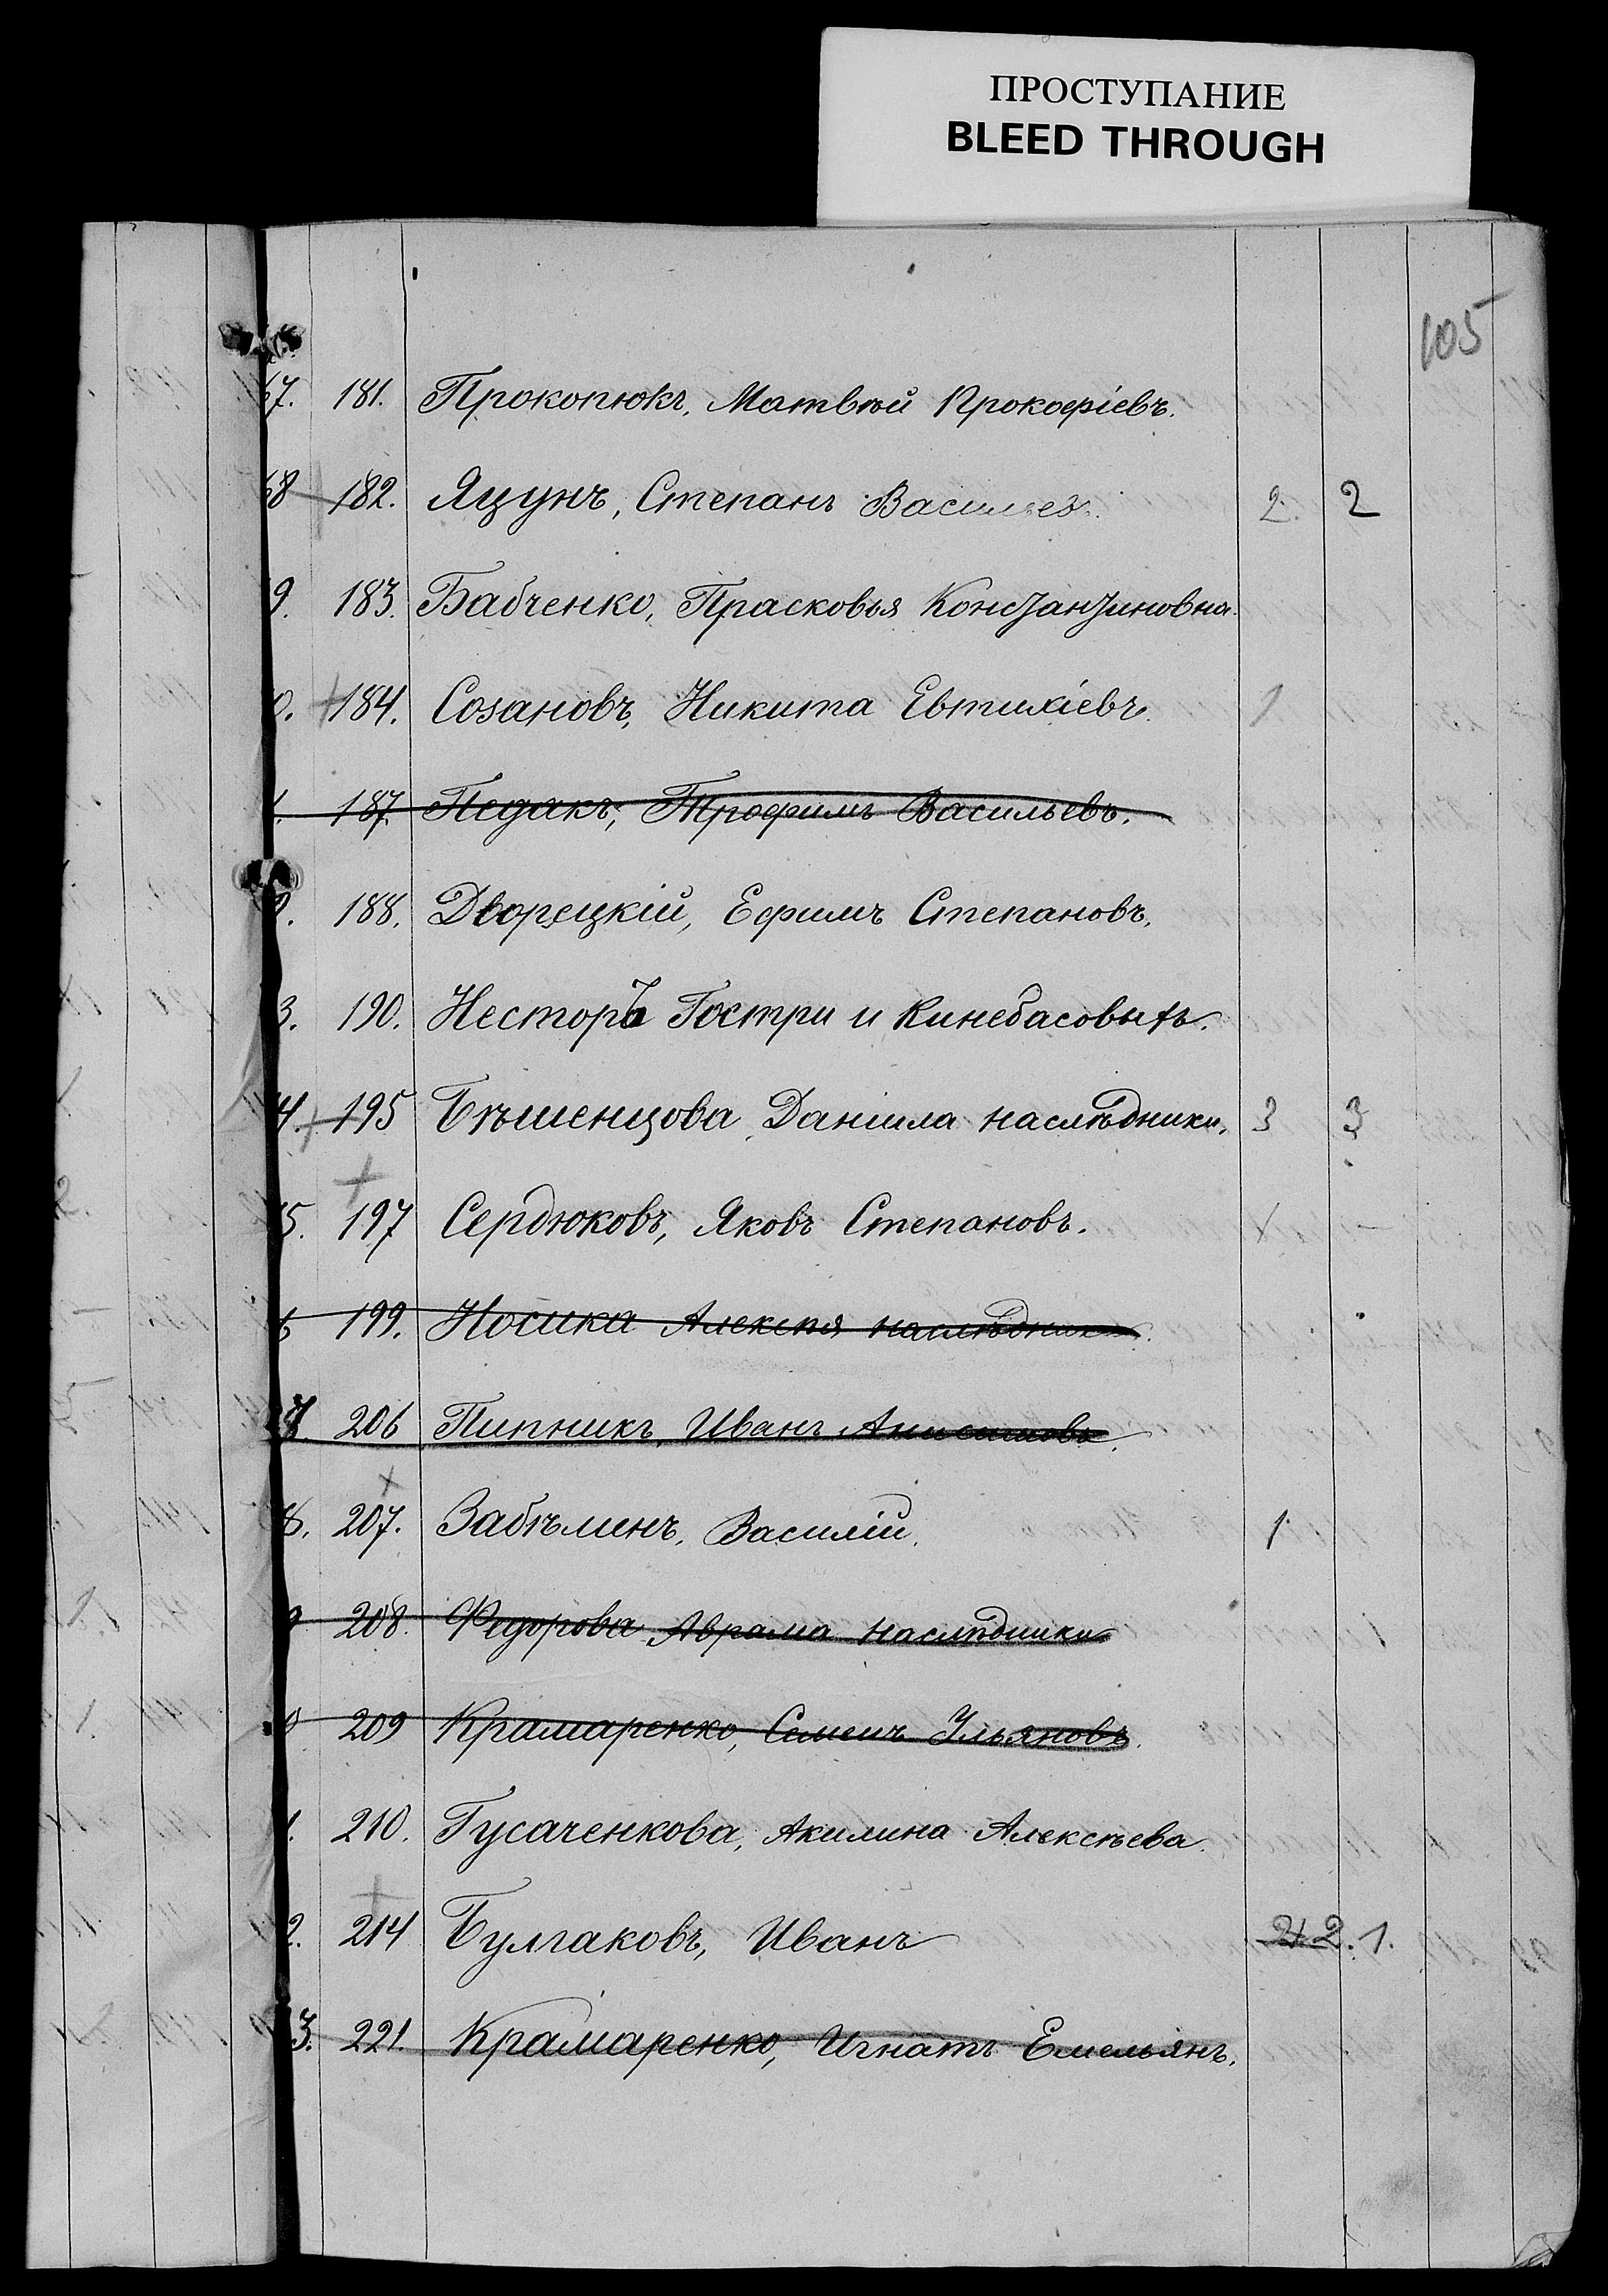 ПРОСТУПАНИЕ
BLEED THROUGH
105
67. 181. Прокопюкъ, Матвѣй Прокофіевъ.
68 182. Яцунъ, Степанъ Васильев. 2. 2
9. 183. Бабченко, Прасковья Константиновна.
0. 184. Созановъ, Никита Евтихіевъ. 1
1. 187. Педакъ, Трофимъ Васильевъ.
2. 188. Дворецкій, Ефимъ Степановъ.
3. 190. Несторъ Гостри и Кинебасовыхъ.
4. 195 Бѣшенцова Даніила наслѣдники. 3 3
5. 197 Сердюковъ, Яковъ Степановъ. х -
6 199. Носика Алексѣя наслѣдники.
7. 206 Пипникъ, Иванъ Анисимовъ.
8. 207. Забѣлинъ, Василій. 1
9 208. Федорова Аврама наслѣдники
0 209 Крамаренко, Семенъ Ульяновъ.
1. 210. Гусаченкова, Акилина Алексѣева.
2. 214 Булгаковъ, Иванъ 2. 1.
3. 221. Крамаренко, Игнатъ Емельянъ.